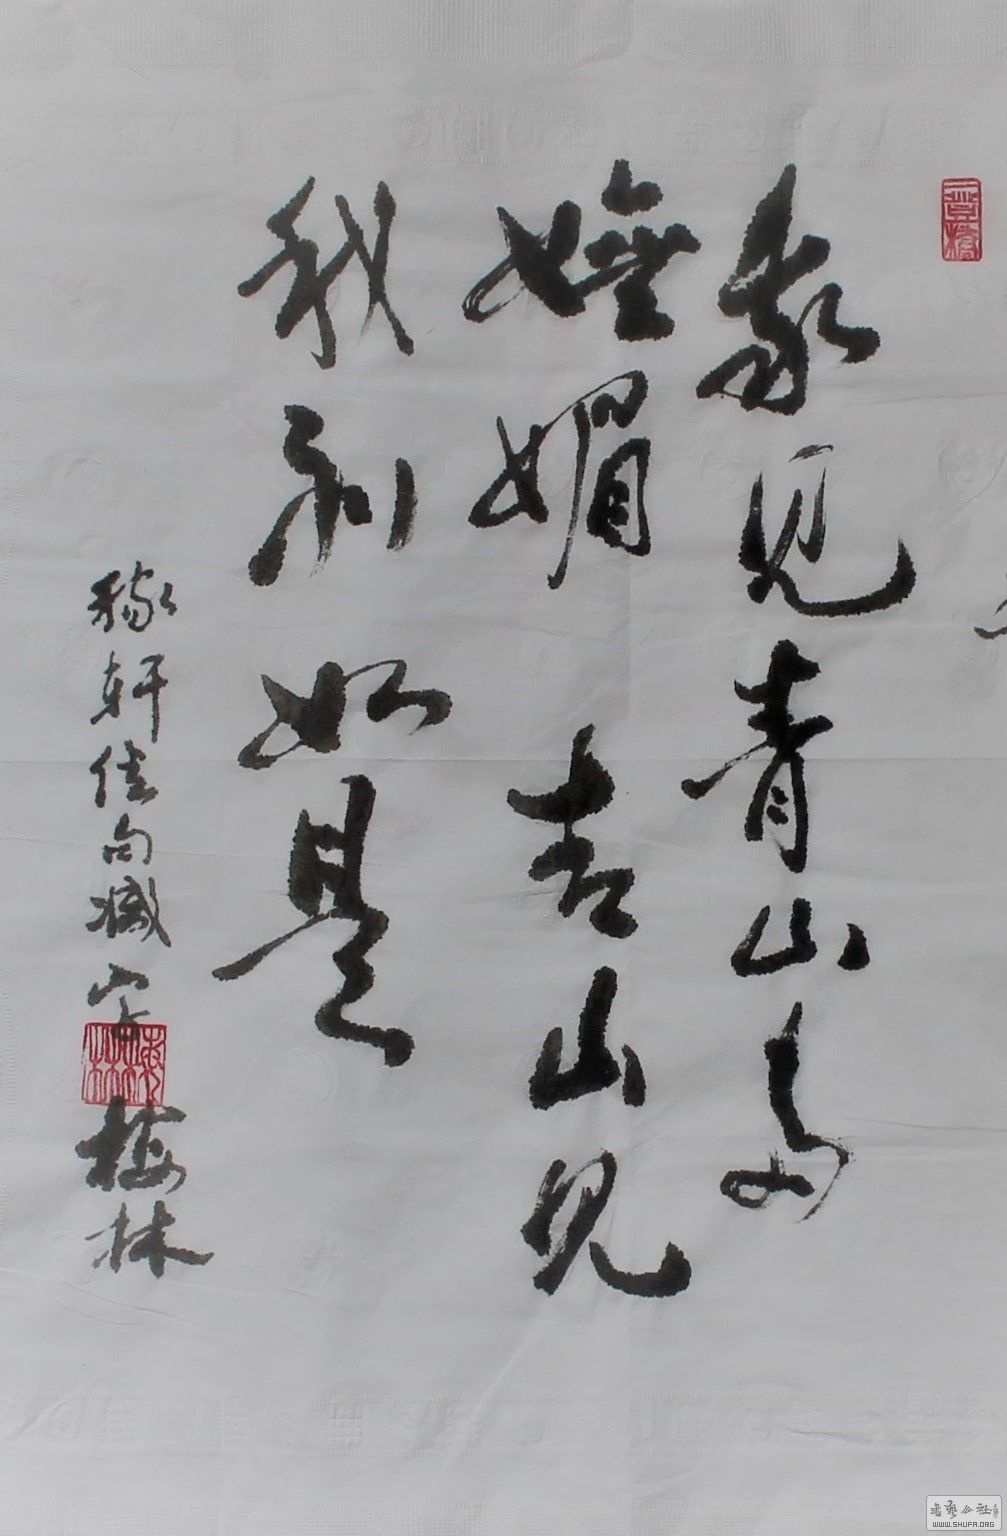 我见青山多
嫵媚青山见
我如是
稼轩佳句减字
梅林
梅林
书艺公社
WWW.SHUFA.ORG